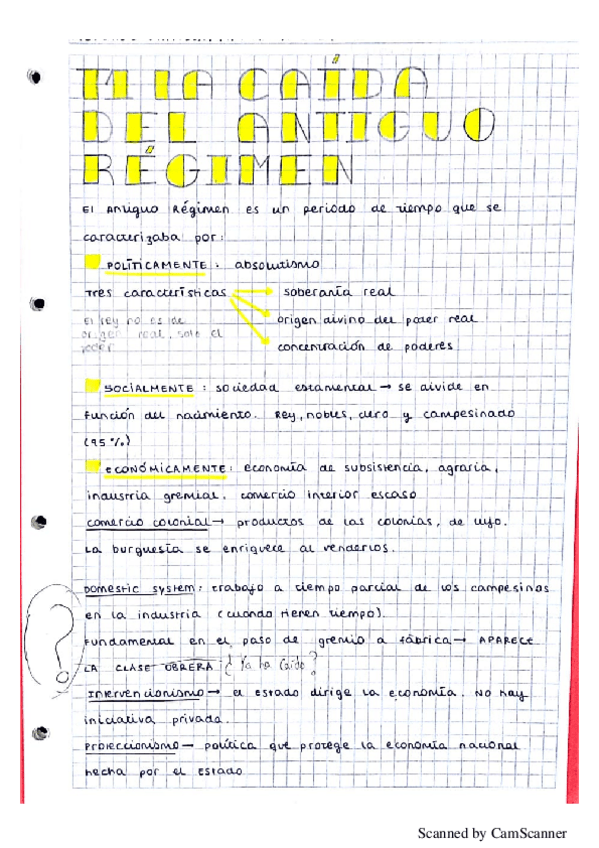 T1 LA CAÍDA
DEL ANTIGUO
RÉGIMEN
El Antiguo Régimen es un periodo de tiempo que se
caracterizaba por:
POLÍTICAMENTE: absolutismo
Tres características → soberanía real
El rey no es de → origen divino del poder real
origen real, solo el
poder → concentración de poderes
SOCIALMENTE: sociedad estamental → se divide en
función del nacimiento. Rey, nobles, clero y campesinado
(95%)
ECONÓMICAMENTE: economía de subsistencia, agraria,
industria gremial. comercio interior escaso
comercio colonial → productos de las colonias, de lujo.
La burguesía se enriquece al venderlos.
Domestic system: trabajo a tiempo parcial de los campesinos
en la industria (cuando tienen tiempo).
?
Fundamental en el paso de gremio a fábrica → APARECE
LA CLASE OBRERA ¿Ya ha caído?
Intervencionismo → el estado dirige la economía. No hay
iniciativa privada.
Proteccionismo — política que protege la economía nacional
hecha por el estado
Scanned by CamScanner